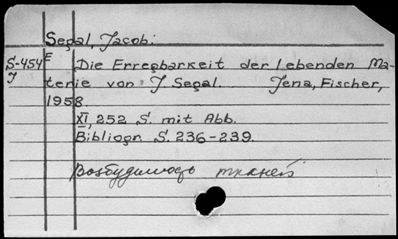 Segal, Jacob.
S-454 E Die Erregbarkeit der lebenden Ma-
J terie von J. Segal. Jena, Fischer,
1958.
XI, 252 S. mit Abb.
Bibliogr. S. 236-239.
Возбудимость тканей